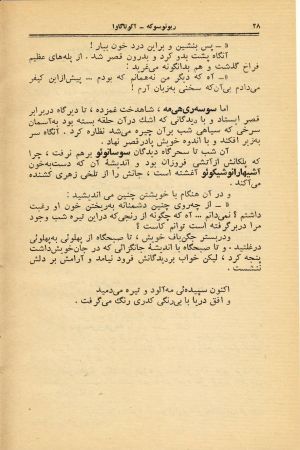 ۲۸ ریونوسوکه ـ آکوتاگاوا
« ـ پس بنشین و براین درد خون ببار !
آنگاه پشت بدو کرد و بدرون قصر شد . از پله‌های عظیم
فراخ گذشت و هم بدانگونه می‌غرید :
« ـ آه که دیگر من نه‌همانم که بودم ... پیش‌ازاین کیفر
می‌دادم بی‌آن‌که سخنی به‌زبان آرم !
اما سوسه‌ری‌هی‌مه ، شاهدخت غمزده ، تا دیرگاه دربرابر
قصر ایستاد و با دیدگانی که اشك درآن حلقه بسته بود به‌آسمان
سرخی که سیاهی شب برآن چیره می‌شد نظاره کرد . آنگاه سر
به‌زیر افکند و با اندوه خویش بادرقصر نهاد .
آن شب تا سحرگاه دیدگان سوسانوئو برهم نرفت ، چرا
که پلکانش ازآتشی فروزان بود و اندیشهٔ آن که دست‌به‌خون
آشیهارانوشیکوئو آغشته است ، جانش را از تلخی زهری کشنده
می‌آکند .
و در آن هنگام با خویشتن چنین می اندیشید :
« ـ از چه‌روی چنین دشمنانه به‌ریختن خون او رغبت
داشتم ؟ نمی‌دانم ... آه که چگونه از رنجی‌که دراین تیره شب وجود
مرا دربرگرفته است توانم کاست ؟
ودربستر جگن‌باف خویش ، تا صبحگاه از پهلوئی به‌پهلوئی
درغلتید . و تا صبحگاه با اندیشهٔ جانگزائی که در جان‌خویش‌داشت
پنجه کرد ، لیکن خواب بردیدگانش فرود نیامد و آرامش بر دلش
ننشست .
اکنون سپیده‌ئی مه‌آلود و تیره می‌دمید
و افق دریا با بی‌رنگی کدری رنگ می‌گرفت .